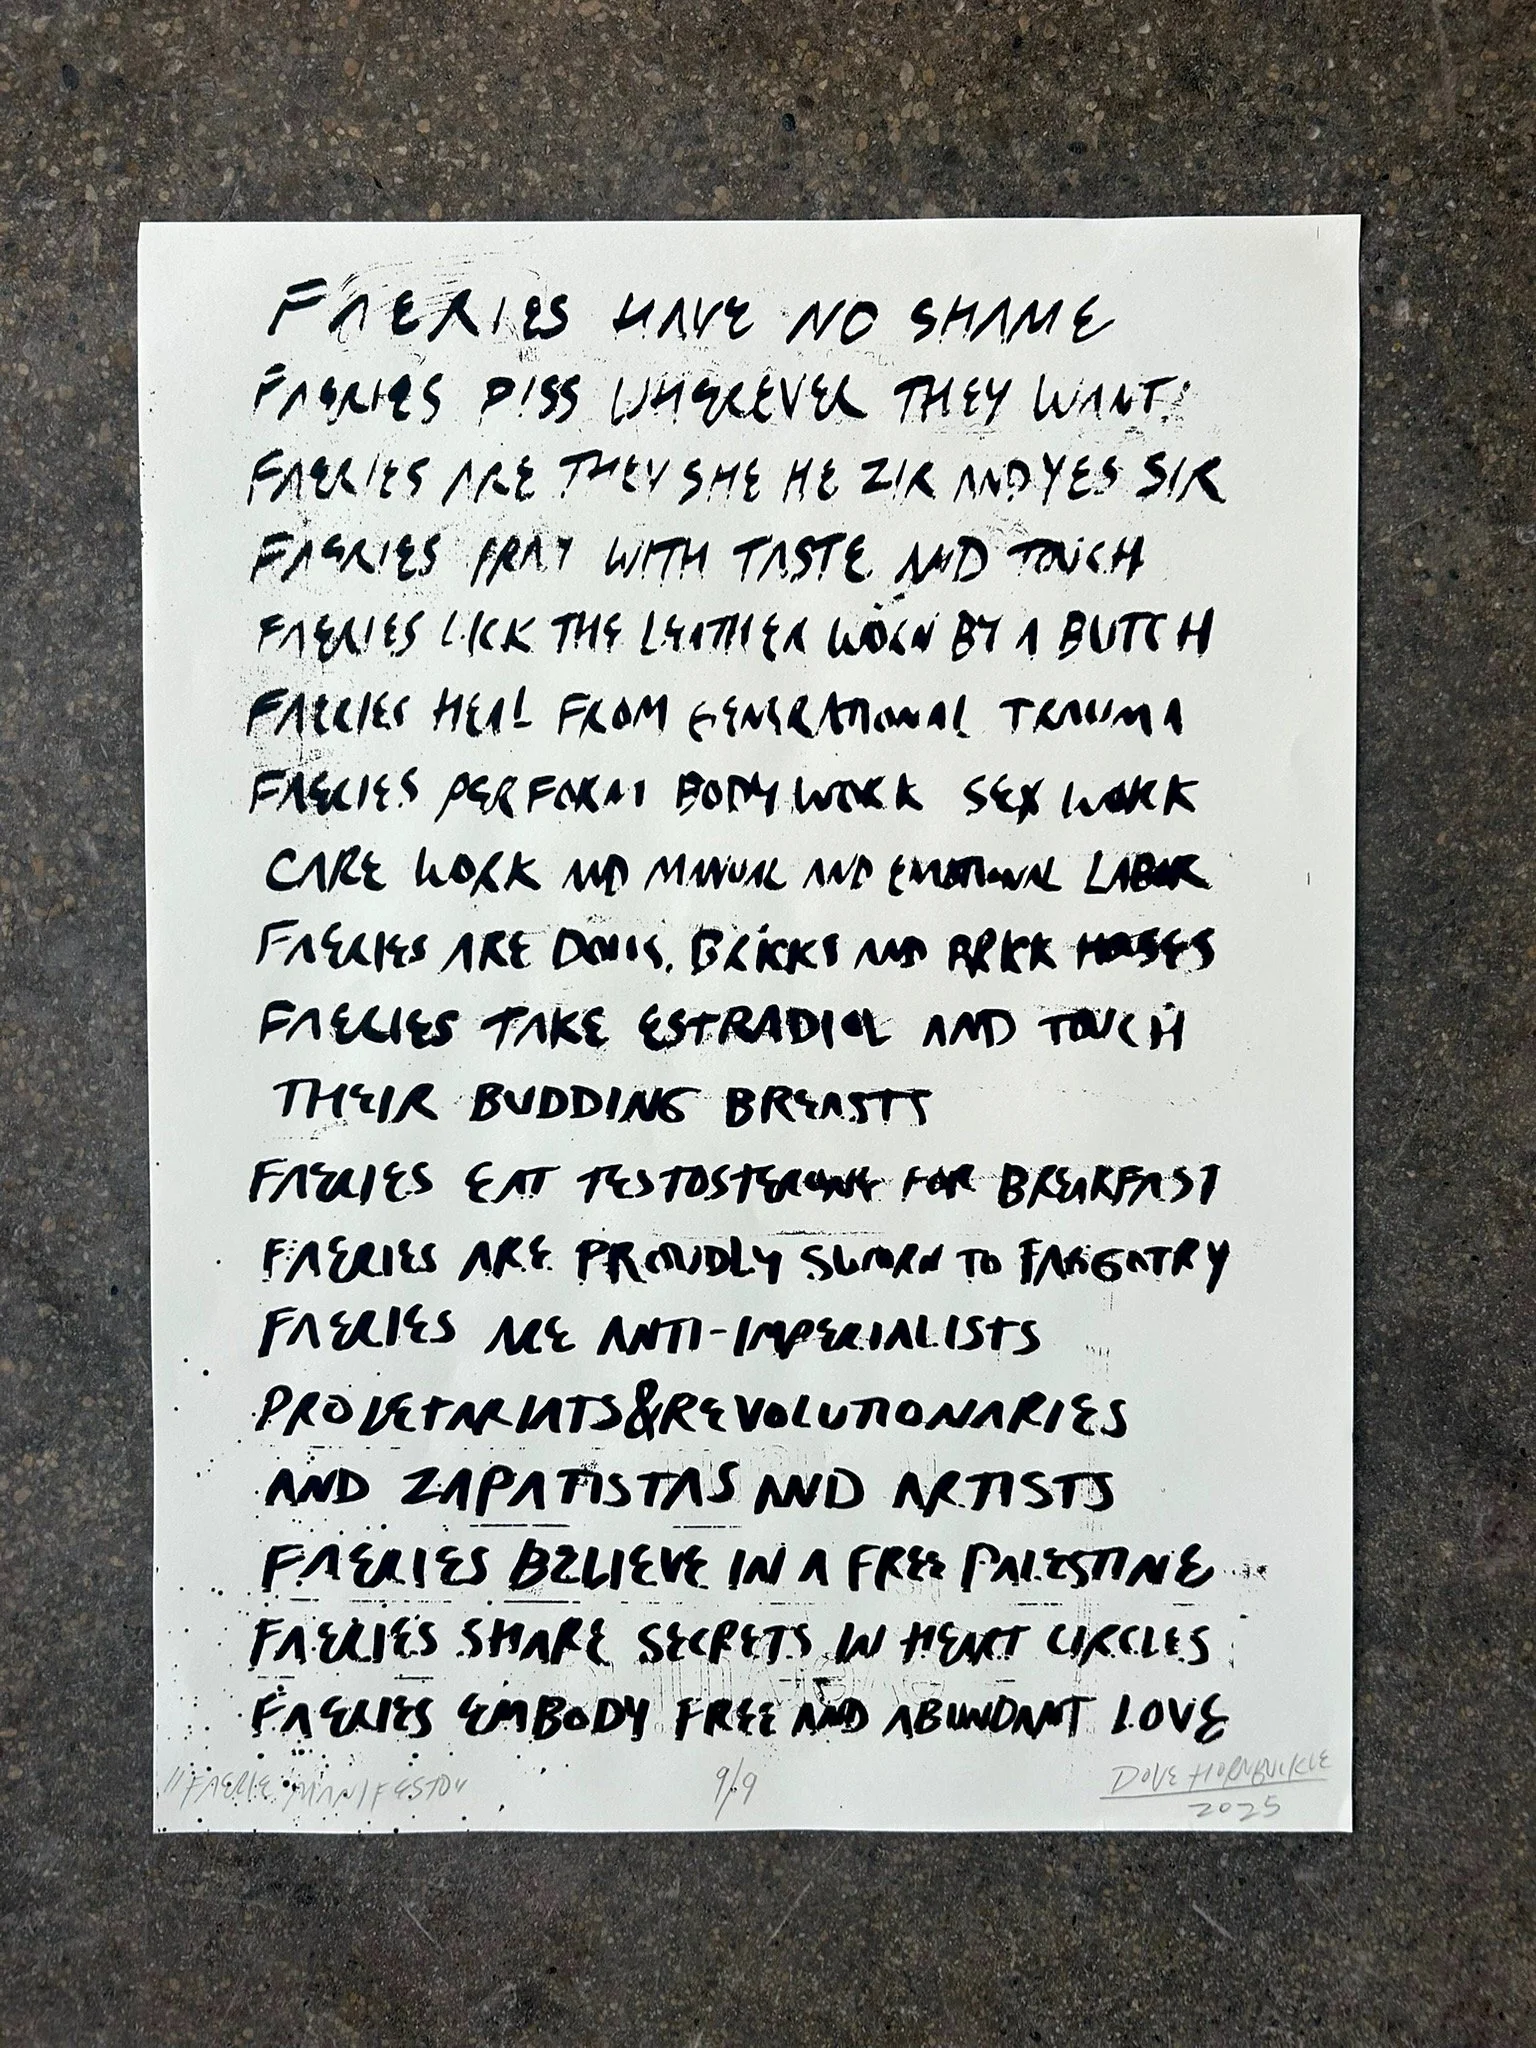 FAERIES HAVE NO SHAME
FAERIES PISS WHEREVER THEY WANT
FAERIES ARE THEY SHE HE ZIR AND YES SIR
FAERIES PRAY WITH TASTE AND TOUCH
FAERIES LICK THE LEATHER WORN BY A BUTCH
FAERIES HEAL FROM GENERATIONAL TRAUMA
FAERIES PERFORM BODY WORK SEX WORK
CARE WORK AND MANUAL AND EMOTIONAL LABOR
FAERIES ARE DOLLS, BRICKS AND BRICK HOUSES
FAERIES TAKE ESTRADIOL AND TOUCH
THEIR BUDDING BREASTS
FAERIES EAT TESTOSTERONE FOR BREAKFAST
FAERIES ARE PROUDLY SWORN TO FAGGOTRY
FAERIES ARE ANTI-IMPERIALISTS
PROLETARIATS & REVOLUTIONARIES
AND ZAPATISTAS AND ARTISTS
FAERIES BELIEVE IN A FREE PALESTINE
FAERIES SHARE SECRETS IN HEART CIRCLES
FAERIES EMBODY FREE AND ABUNDANT LOVE
"FAERIE MANIFESTO" 9/9 DOVE HORNBUCKLE
2025